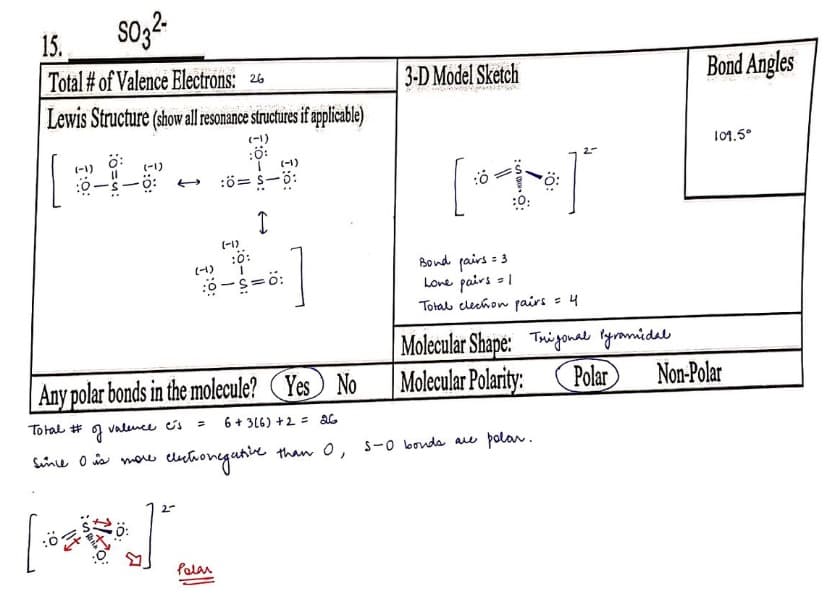 15. SO₃²⁻
Total # of Valence Electrons: 26
Lewis Structure (show all resonance structures if applicable)
[ (-1) :Ö–S(=Ö:)–Ö: (-1) ↔ :Ö=S(–Ö: (-1))–Ö: (-1)
↕
(-1) :Ö–S(–Ö: (-1))=Ö: ]
Any polar bonds in the molecule? Yes No
3-D Model Sketch
[ :Ö=S̈–Ö: :O: ]²⁻
Bond pairs = 3
Lone pairs = 1
Total electron pairs = 4
Molecular Shape: Trigonal Pyramidal
Molecular Polarity: Polar Non-Polar
Bond Angles
109.5°
Total # of valence e's = 6 + 3(6) + 2 = 26
Since O is more electronegative than O, S-O bonds are polar.
[ :Ö=S̈–Ö: :O: ]²⁻
Polar